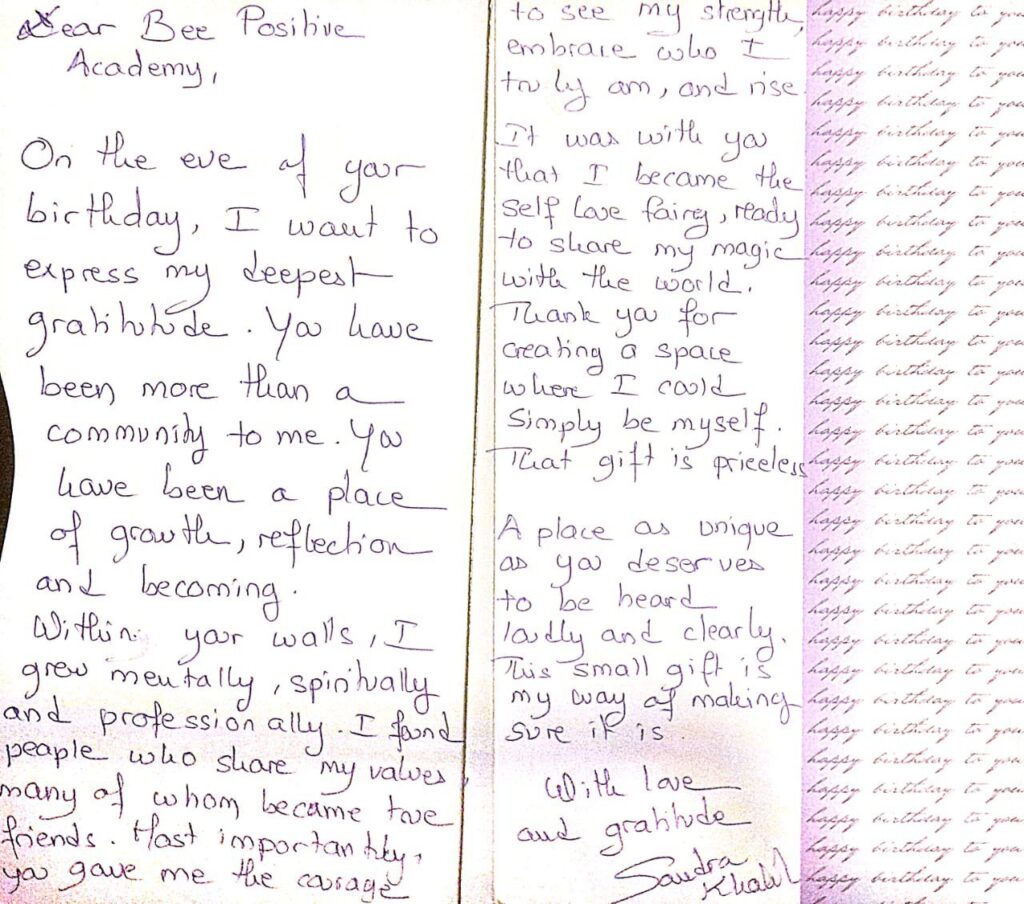 Dear Bee Positive
Academy,
On the eve of your
birthday, I want to
express my deepest
gratitutude. You have
been more than a
community to me. You
have been a place
of growth, reflection
and becoming.
Within your walls, I
grew mentally, spiritually
and professionally. I found
people who share my values
many of whom became true
friends. Most importantly,
you gave me the courage
to see my strength,
embrace who I
truly am, and rise.
It was with you
that I became the
self love fairy, ready
to share my magic
with the world.
Thank you for
creating a space
where I could
simply be myself.
That gift is priceless
A place as unique
as you deserves
to be heard
loudly and clearly.
This small gift is
my way of making
sure it is.
With love
and gratitude
Sandra
Khalil
happy birthday to you
happy birthday to you
happy birthday to you
happy birthday to you
happy birthday to you
happy birthday to you
happy birthday to you
happy birthday to you
happy birthday to you
happy birthday to you
happy birthday to you
happy birthday to you
happy birthday to you
happy birthday to you
happy birthday to you
happy birthday to you
happy birthday to you
happy birthday to you
happy birthday to you
happy birthday to you
happy birthday to you
happy birthday to you
happy birthday to you
happy birthday to you
happy birthday to you
happy birthday to you
happy birthday to you
happy birthday to you
happy birthday to you
happy birthday to you